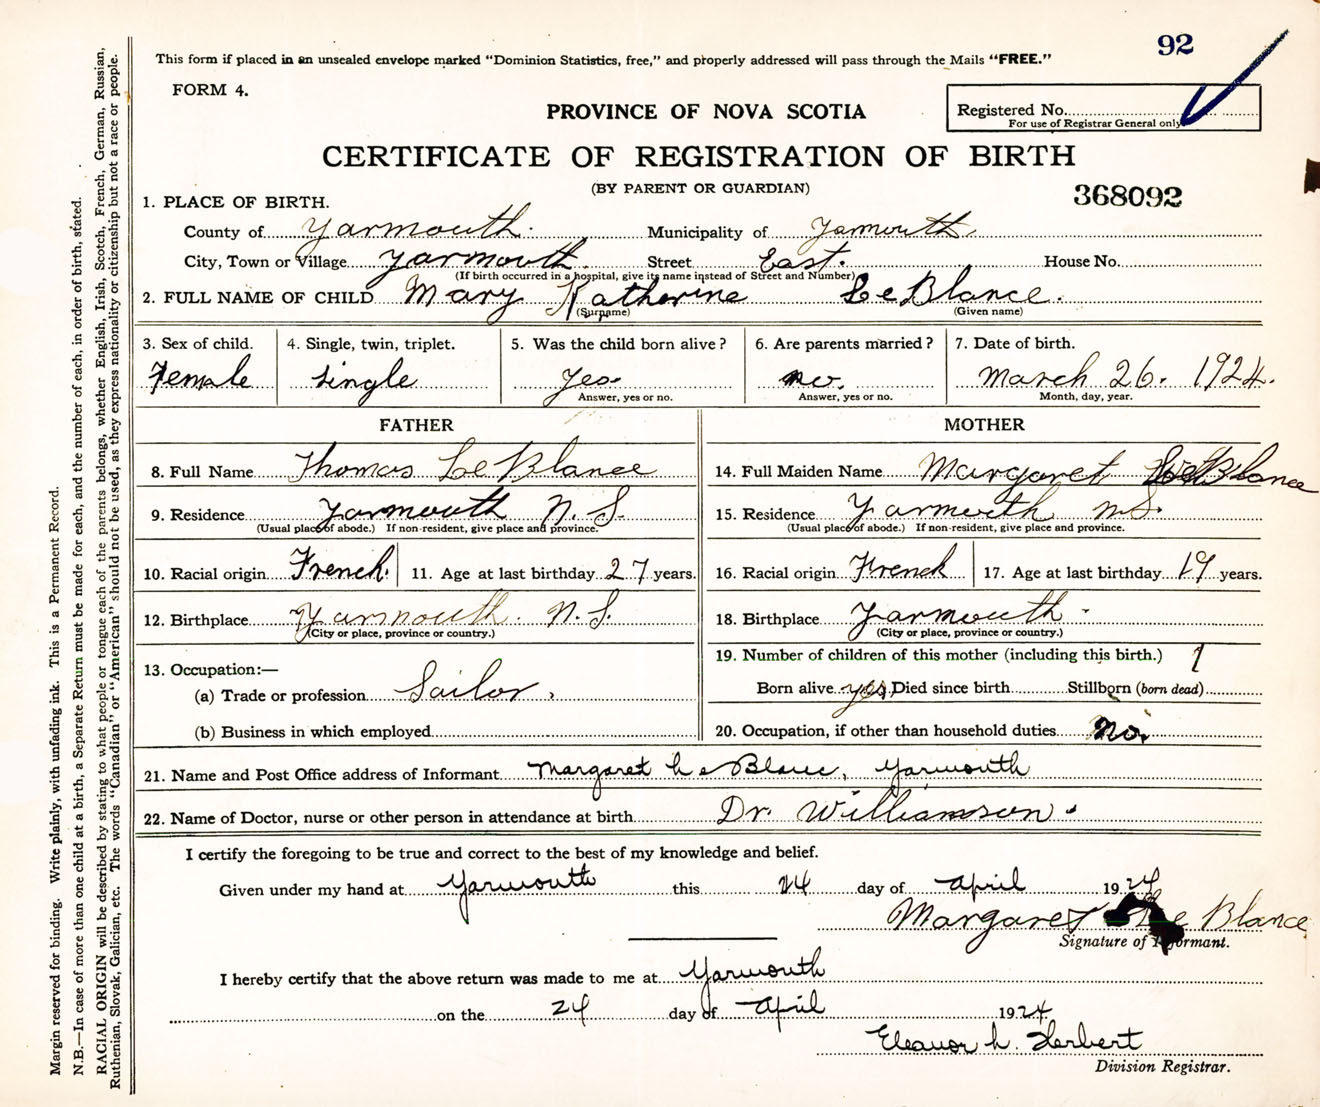 92
This form if placed in an unsealed envelope marked "Dominion Statistics, free," and properly addressed will pass through the Mails "FREE."
FORM 4.
PROVINCE OF NOVA SCOTIA
Registered No.
For use of Registrar General only
CERTIFICATE OF REGISTRATION OF BIRTH
(BY PARENT OR GUARDIAN)
368092
1. PLACE OF BIRTH.
County of Yarmouth. Municipality of Yarmouth.
City, Town or Village Yarmouth. Street East. House No.
(If birth occurred in a hospital, give its name instead of Street and Number)
2. FULL NAME OF CHILD Mary Katherine Le Blance.
(Surname) (Given name)
3. Sex of child. 4. Single, twin, triplet. 5. Was the child born alive? 6. Are parents married? 7. Date of birth.
Female Single Yes. no. March 26. 1924.
Answer, yes or no. Answer, yes or no. Month, day, year.
FATHER MOTHER
8. Full Name Thomas Le Blance 14. Full Maiden Name Margaret Le Blance
9. Residence Yarmouth N.S. 15. Residence Yarmouth N.S.
(Usual place of abode.) If non-resident, give place and province. (Usual place of abode.) If non-resident, give place and province.
10. Racial origin French. 11. Age at last birthday 27 years. 16. Racial origin French 17. Age at last birthday 19 years.
12. Birthplace Yarmouth. N.S. 18. Birthplace Yarmouth -
(City or place, province or country.) (City or place, province or country.)
13. Occupation:— 19. Number of children of this mother (including this birth.) 1
(a) Trade or profession Sailor, Born alive yes. Died since birth Stillborn (born dead)
(b) Business in which employed 20. Occupation, if other than household duties No.
21. Name and Post Office address of Informant Margaret Le Blanc, Yarmouth
22. Name of Doctor, nurse or other person in attendance at birth Dr. Williamson.
I certify the foregoing to be true and correct to the best of my knowledge and belief.
Given under my hand at Yarmouth this 24 day of April 1924
Margaret Le Blance
Signature of Informant.
I hereby certify that the above return was made to me at Yarmouth
on the 24 day of April 1924
Eleanor L. Herbert
Division Registrar.
Margin reserved for binding. Write plainly, with unfading ink. This is a Permanent Record.
N.B.—In case of more than one child at a birth, a Separate Return must be made for each, and the number of each, in order of birth, stated.
RACIAL ORIGIN will be described by stating to what people or tongue each of the parents belongs, whether English, Irish, Scotch, French, German, Russian,
Ruthenian, Slovak, Galician, etc. The words "Canadian" or "American" should not be used, as they express nationality or citizenship but not a race or people.